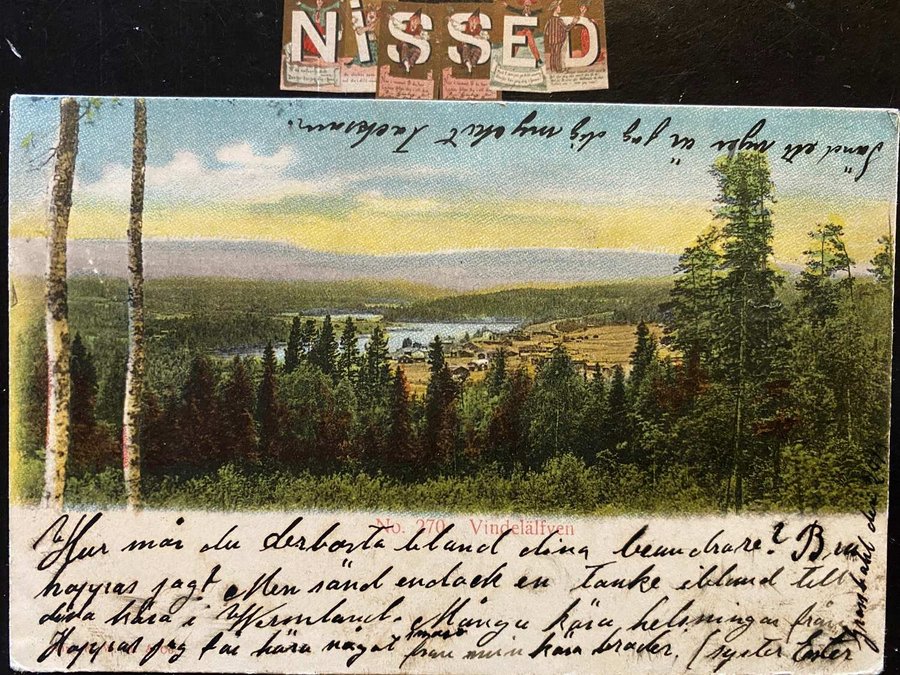 NISSED
Sänd ett nyar är jag dig mycket Tacksam.
No. 270. Vindelälfven
Hur mår du derborta bland dina beundrare? Bra
hoppas jag! Men sänd endock en Tanke ibland till
dina kära i Wermland. Många kära helsningar från
Hoppas jag får höra något snart från min kära broder. (syster Ester